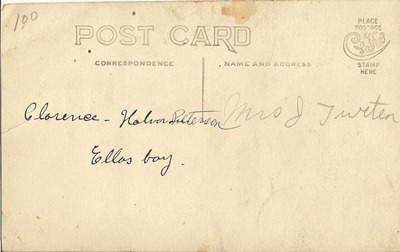 100
POST CARD
CORRESPONDENCE
NAME AND ADDRESS
PLACE
POSTAGE
STAMP
HERE
Clarence - Halvor Peterson
Ellas boy.
Mrs J Tweten